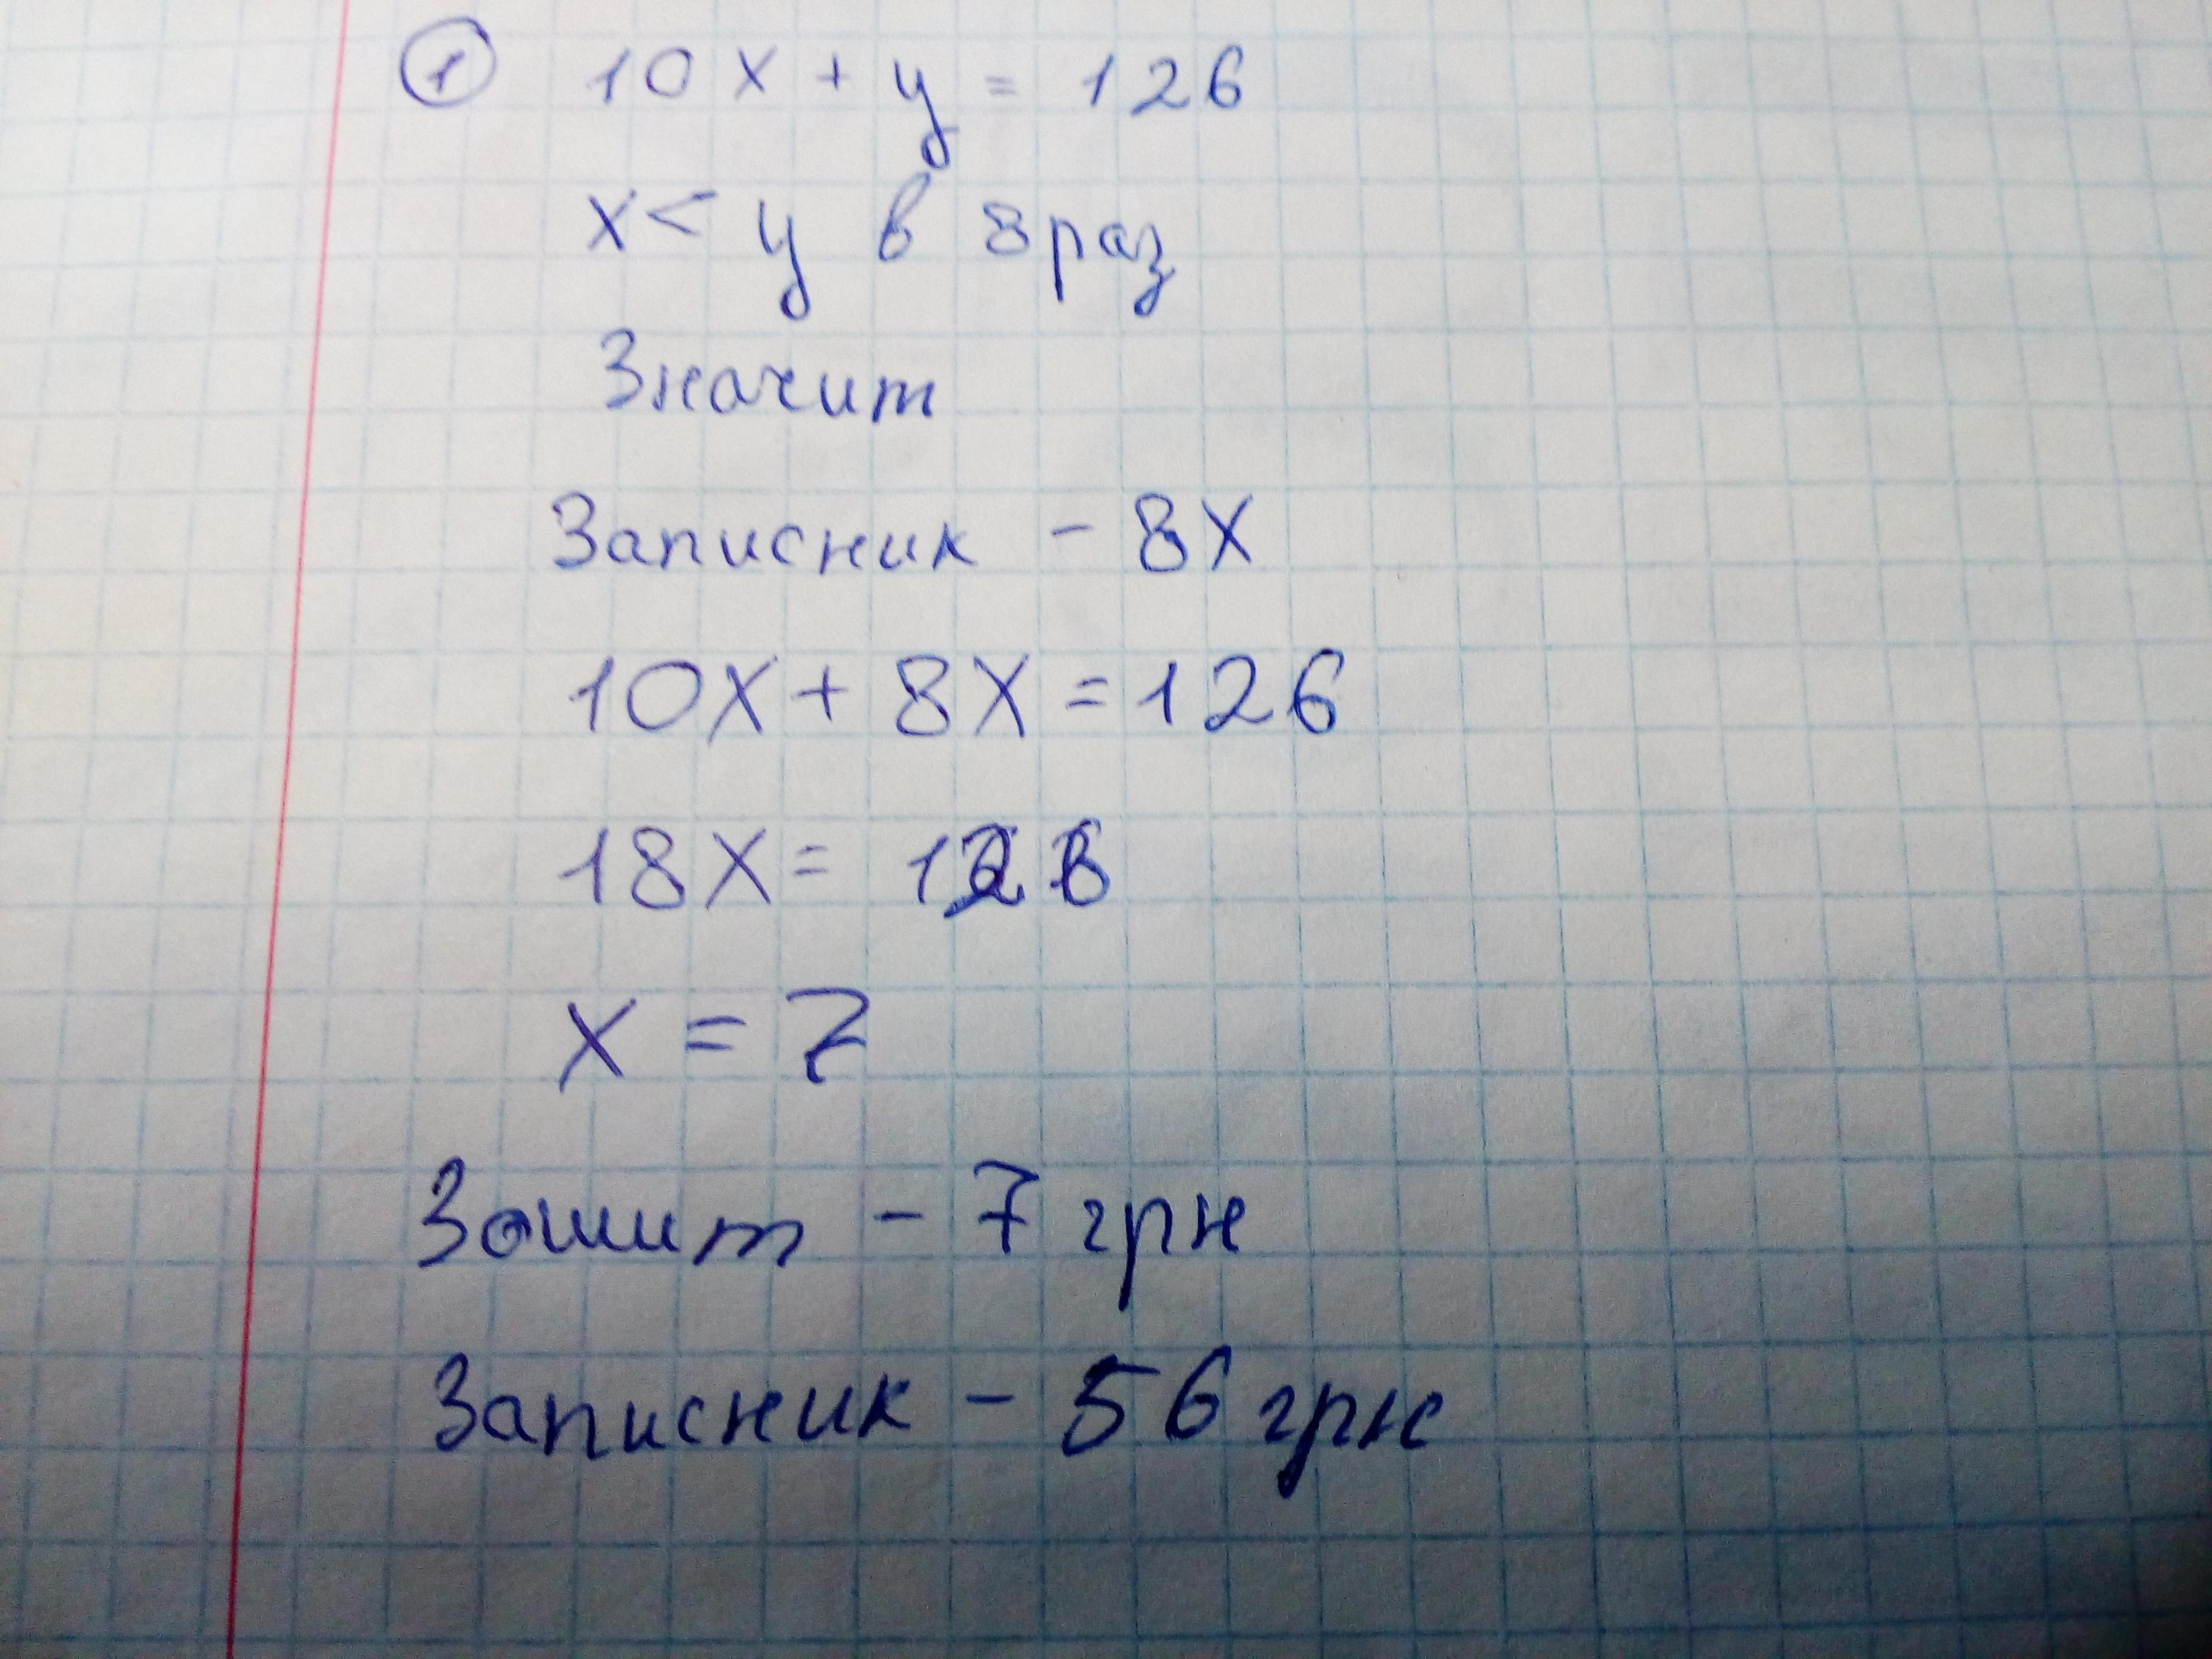 ① 10x + y = 126
x < y в 8 раз
Значит
Записник - 8x
10x + 8x = 126
18x = 126
x = 7
Зошит - 7 грн
Записник - 56 грн